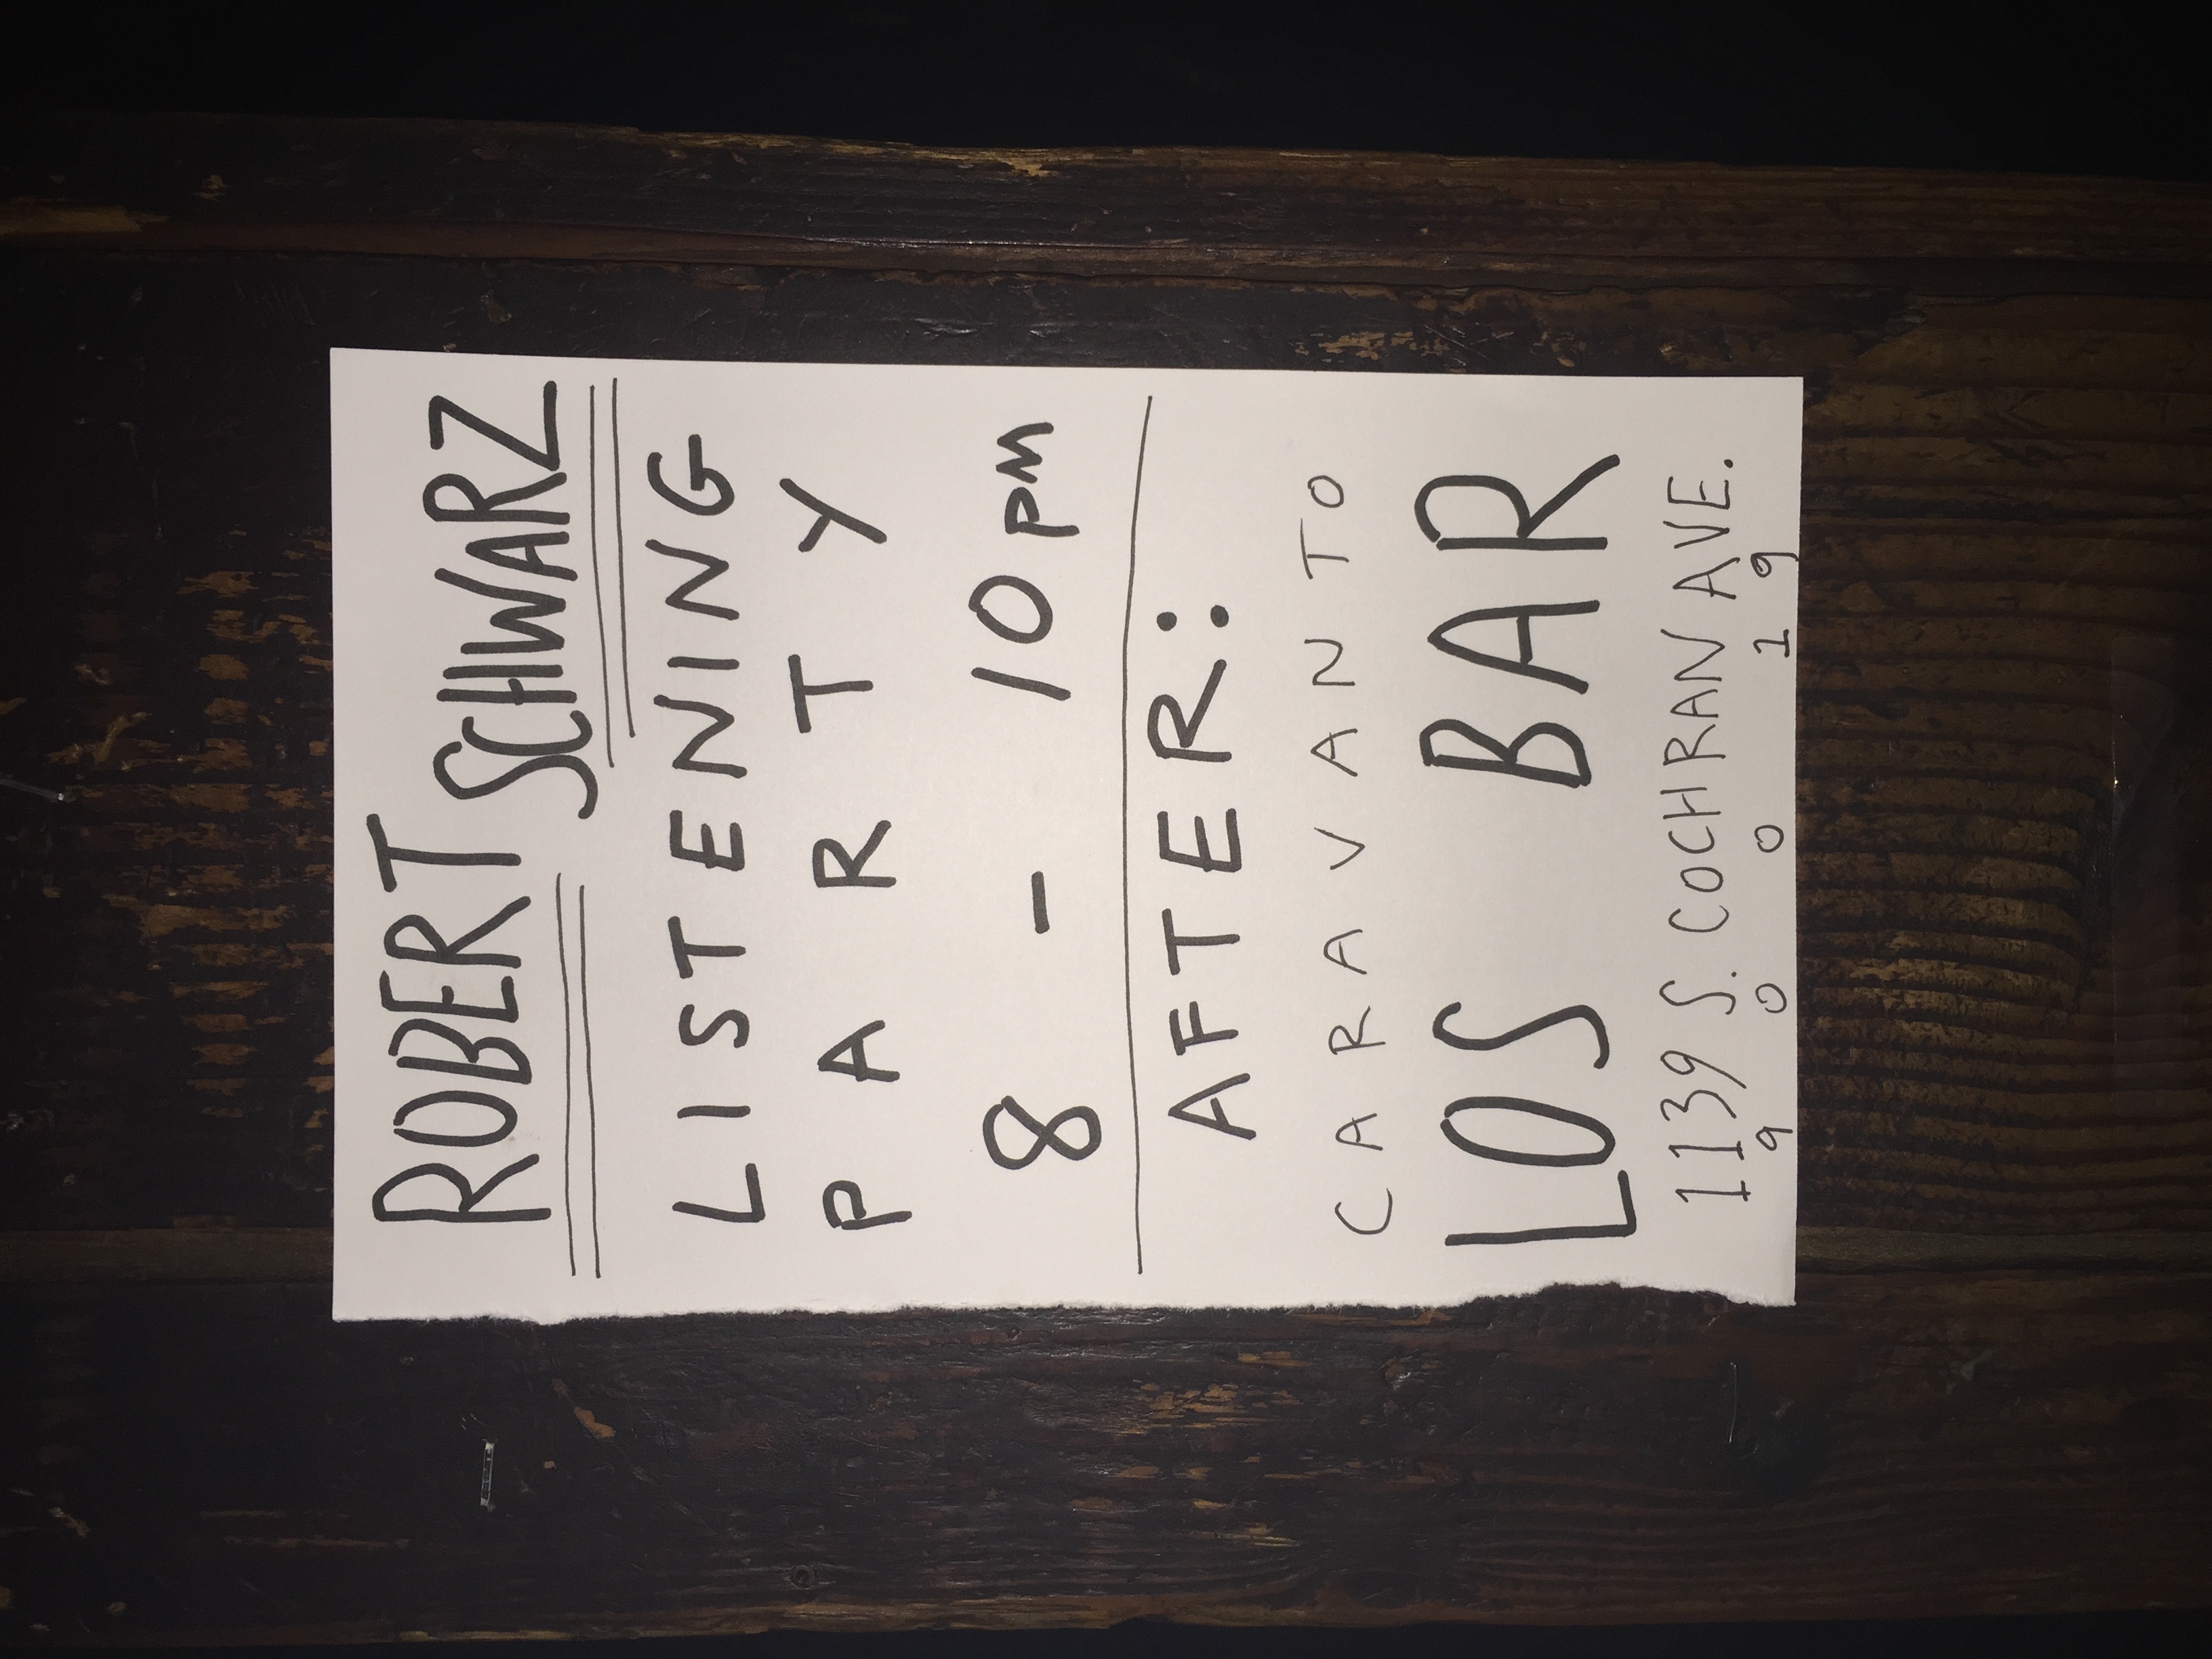 ROBERT SCHWARZ
LISTENING
PARTY
8 - 10 pm
AFTER:
CARAVAN TO
LOS BAR
1139 S. COCHRAN AVE.
90019